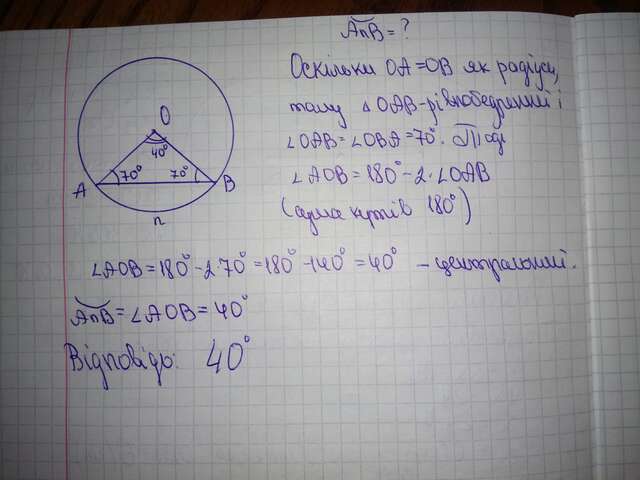 A͡nB = ?
Оскільки OA=OB як радіуси,
тому △OAB-рівнобедрений і
∠OAB=∠OBA=70°. Тоді
∠AOB=180°-2·∠OAB
(сума кутів 180°)
O
40°
70°
70°
A
B
n
∠AOB=180°-2·70°=180°-140°=40° - центральний.
A͡nB=∠AOB=40°
Відповідь: 40°